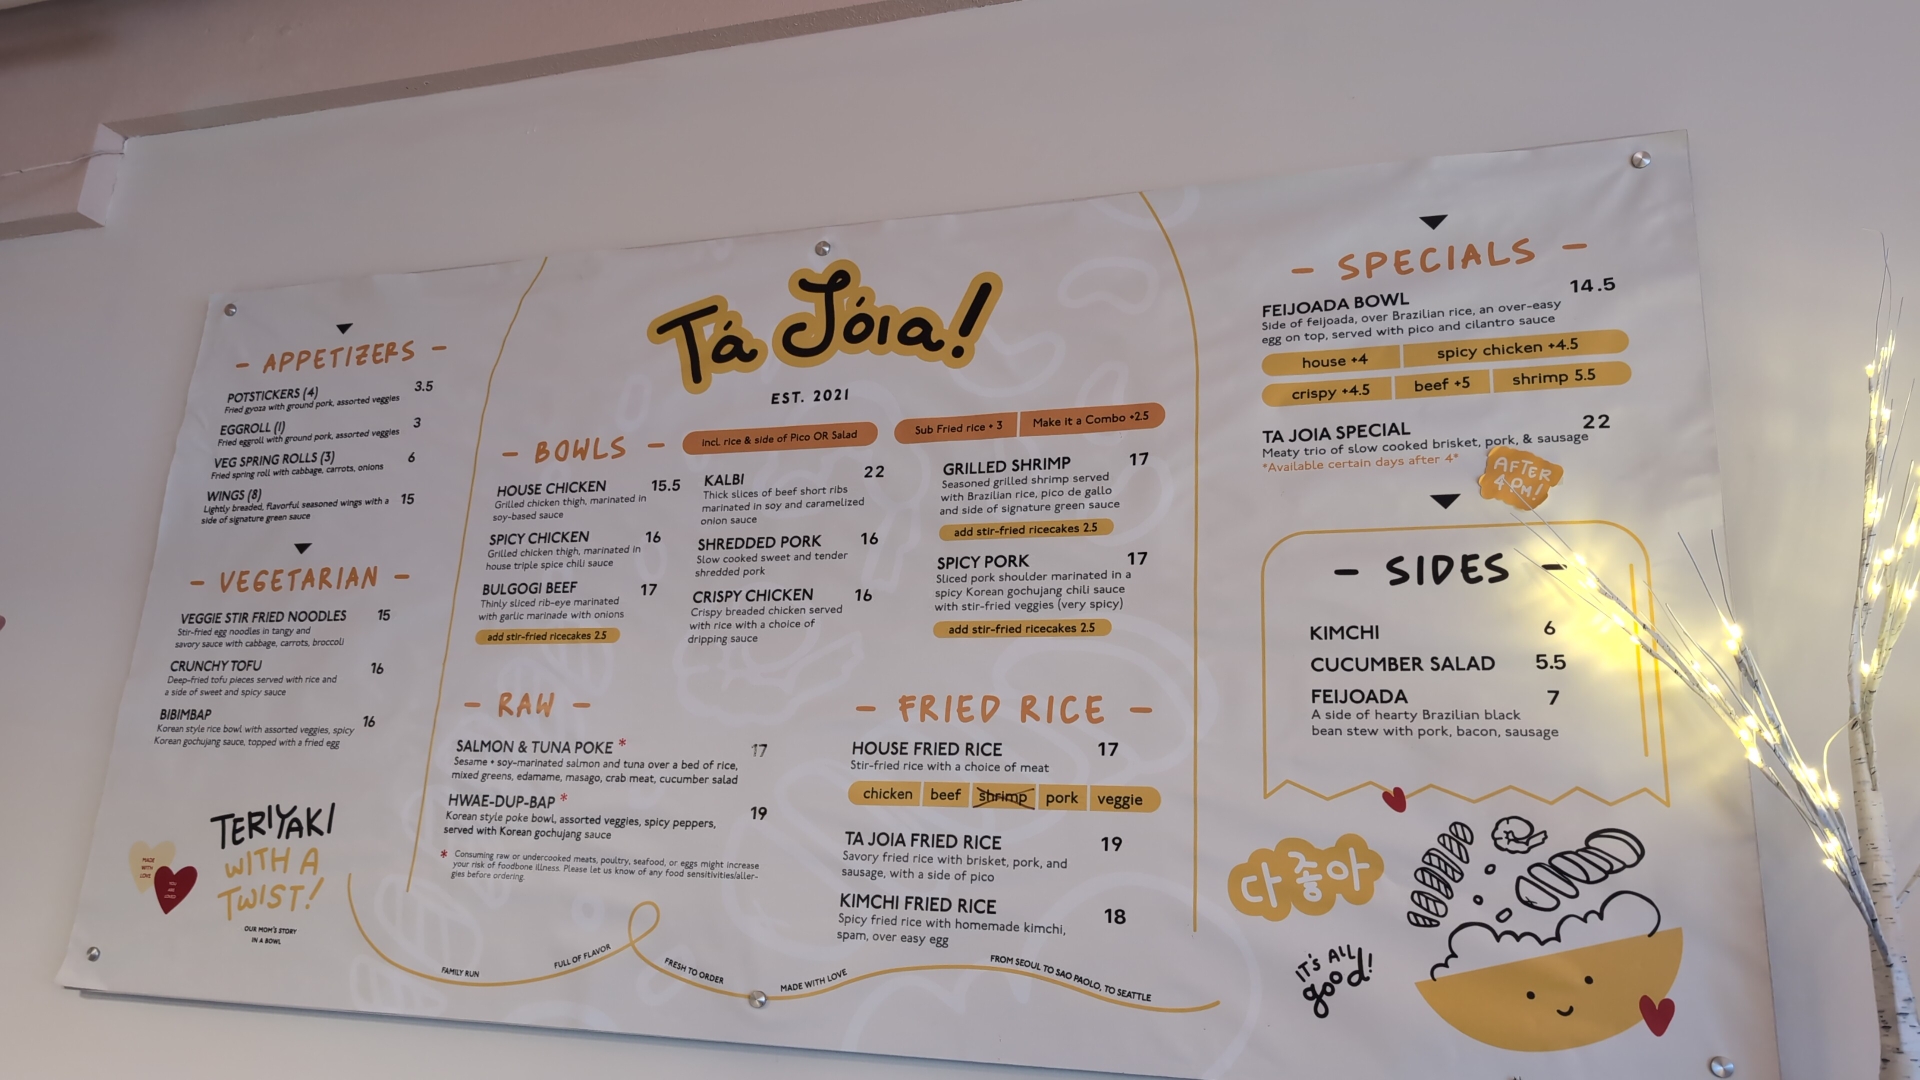 - APPETIZERS -
POTSTICKERS (4) 3.5
Fried gyoza with ground pork, assorted veggies
EGGROLL (1) 3
Fried eggroll with ground pork, assorted veggies
VEG SPRING ROLLS (3) 6
Fried spring roll with cabbage, carrots, onions
WINGS (8) 15
Lightly breaded, flavorful seasoned wings with a
side of signature green sauce
- VEGETARIAN -
VEGGIE STIR FRIED NOODLES 15
Stir-fried egg noodles in tangy and
savory sauce with cabbage, carrots, broccoli
CRUNCHY TOFU 16
Deep-fried tofu pieces served with rice and
a side of sweet and spicy sauce
BIBIMBAP 16
Korean style rice bowl with assorted veggies, spicy
Korean gochujang sauce, topped with a fried egg
MADE
WITH
LOVE
YOU
ARE
LOVED
TERIYAKI
WITH A
TWIST!
OUR MOM'S STORY
IN A BOWL
Tá Jóia!
EST. 2021
- BOWLS -
Incl. rice & side of Pico OR Salad
Sub Fried rice + 3
Make it a Combo +2.5
HOUSE CHICKEN 15.5
Grilled chicken thigh, marinated in
soy-based sauce
SPICY CHICKEN 16
Grilled chicken thigh, marinated in
house triple spice chili sauce
BULGOGI BEEF 17
Thinly sliced rib-eye marinated
with garlic marinade with onions
add stir-fried ricecakes 2.5
KALBI 22
Thick slices of beef short ribs
marinated in soy and caramelized
onion sauce
SHREDDED PORK 16
Slow cooked sweet and tender
shredded pork
CRISPY CHICKEN 16
Crispy breaded chicken served
with rice with a choice of
dripping sauce
GRILLED SHRIMP 17
Seasoned grilled shrimp served
with Brazilian rice, pico de gallo
and side of signature green sauce
add stir-fried ricecakes 2.5
SPICY PORK 17
Sliced pork shoulder marinated in a
spicy Korean gochujang chili sauce
with stir-fried veggies (very spicy)
add stir-fried ricecakes 2.5
- RAW -
SALMON & TUNA POKE * 17
Sesame + soy-marinated salmon and tuna over a bed of rice,
mixed greens, edamame, masago, crab meat, cucumber salad
HWAE-DUP-BAP * 19
Korean style poke bowl, assorted veggies, spicy peppers,
served with Korean gochujang sauce
* Consuming raw or undercooked meats, poultry, seafood, or eggs might increase
your risk of foodbone illness. Please let us know of any food sensitivities/aller-
gies before ordering.
- FRIED RICE -
HOUSE FRIED RICE 17
Stir-fried rice with a choice of meat
chicken beef shrimp pork veggie
TA JOIA FRIED RICE 19
Savory fried rice with brisket, pork, and
sausage, with a side of pico
KIMCHI FRIED RICE 18
Spicy fried rice with homemade kimchi,
spam, over easy egg
FAMILY RUN
FULL OF FLAVOR
FRESH TO ORDER
MADE WITH LOVE
FROM SEOUL TO SAO PAOLO, TO SEATTLE
- SPECIALS -
FEIJOADA BOWL 14.5
Side of feijoada, over Brazilian rice, an over-easy
egg on top, served with pico and cilantro sauce
house +4
spicy chicken +4.5
crispy +4.5
beef +5
shrimp 5.5
TA JOIA SPECIAL 22
Meaty trio of slow cooked brisket, pork, & sausage
*Available certain days after 4*
AFTER
4 PM!
- SIDES -
KIMCHI 6
CUCUMBER SALAD 5.5
FEIJOADA 7
A side of hearty Brazilian black
bean stew with pork, bacon, sausage
다 좋아
IT'S ALL
good!